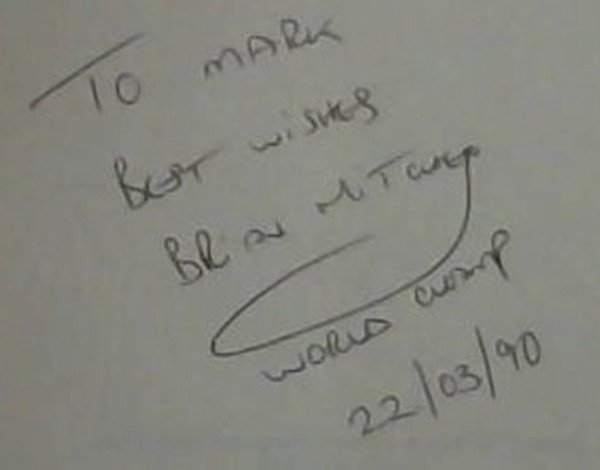 TO MARK
BEST WISHES
BRIAN MITCHELL
WORLD CHAMP
22/03/90